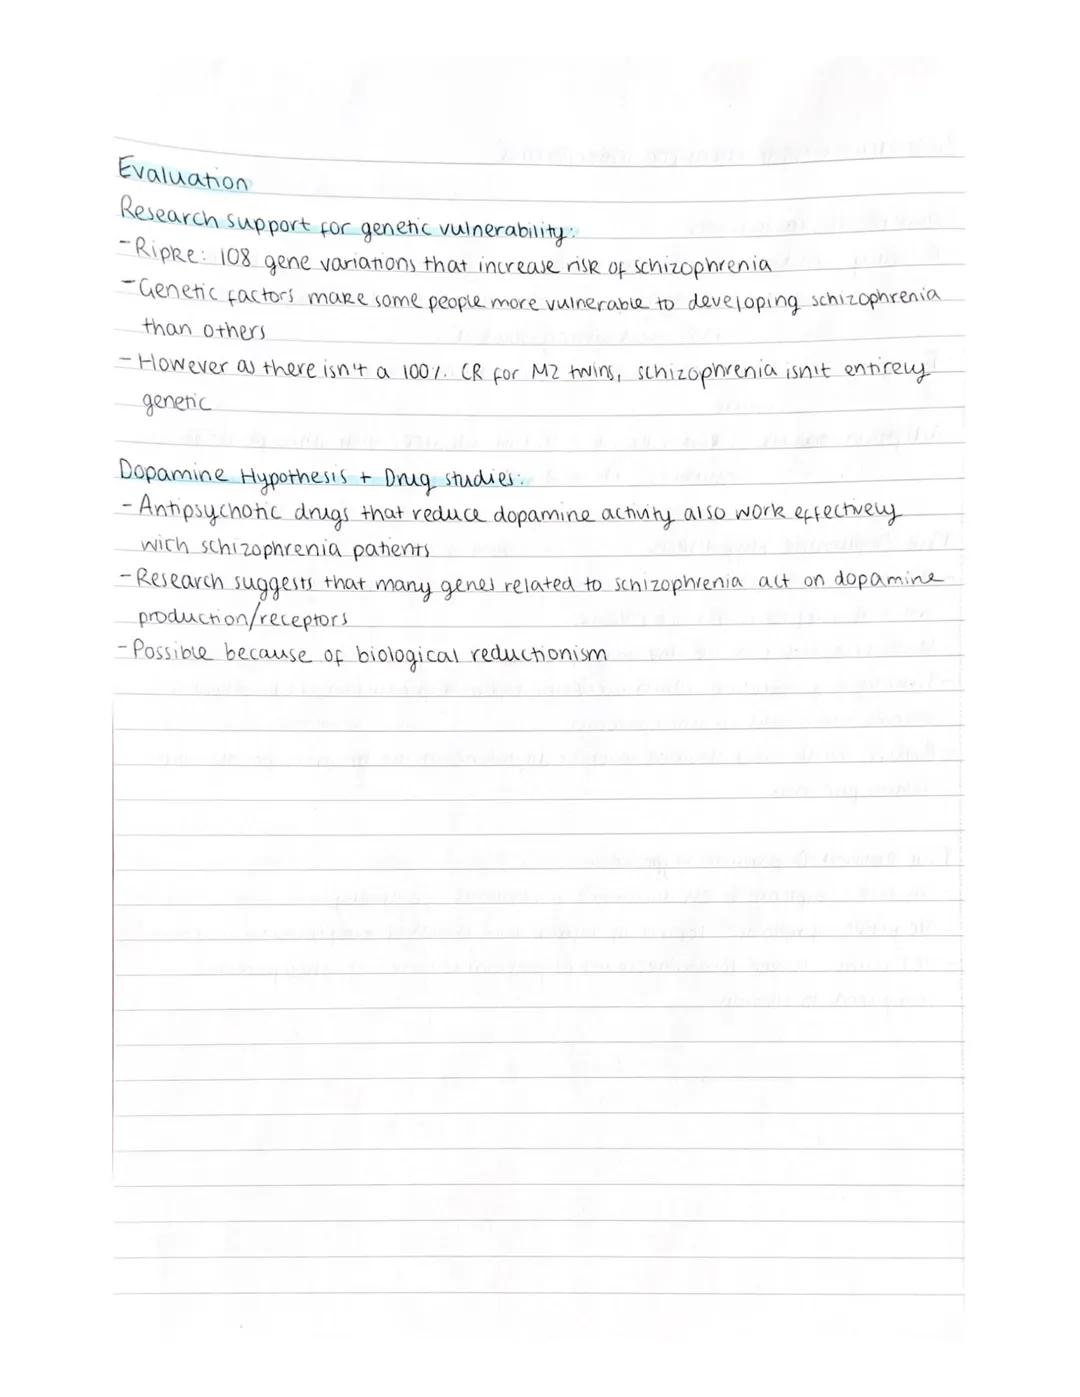 Evaluation
Research support for genetic vulnerability:
-Ripke: 108 gene variations that increase risk of schizophrenia
-Genetic factors make some people more vulnerable to developing schizophrenia
than others
-However as there isn't a 100% CR for MZ twins, schizophrenia isn't entirely
genetic
Dopamine Hypothesis + Drug studies:
-Antipsychotic drugs that reduce dopamine activity also work effectively
with schizophrenia patients
-Research suggests that many genes related to schizophrenia act on dopamine
production/receptors
-Possible because of biological reductionism